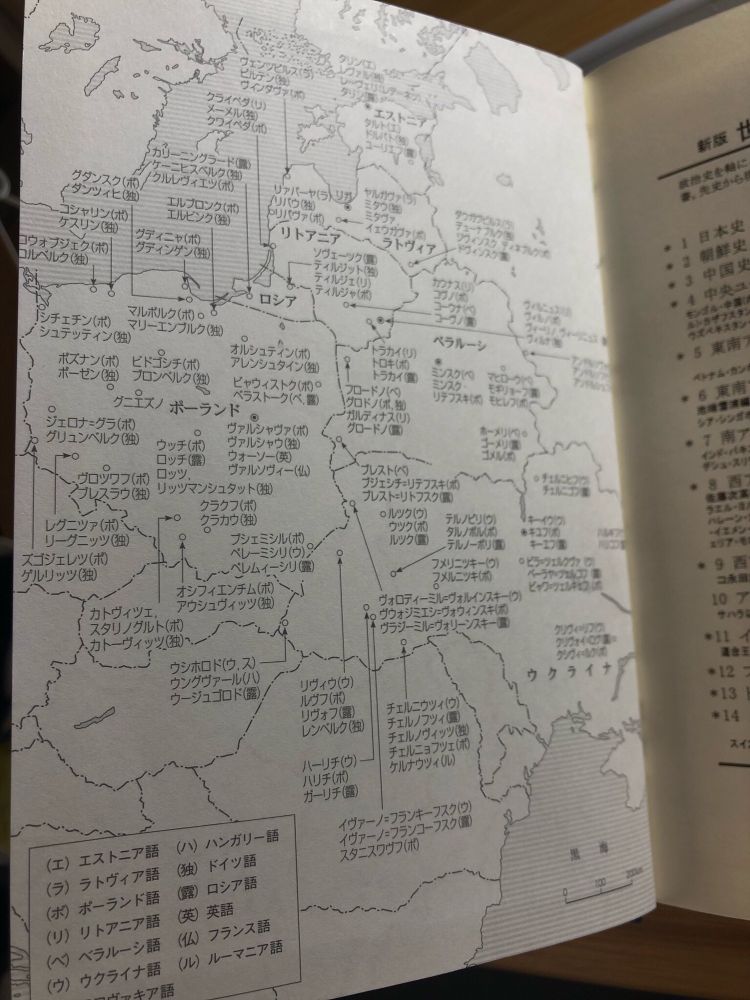 ヴェンツピルス(ラ)
ピルテン(独)
ヴィンダヴァ(ポ)
タリン(エ)
レヴァル(独)
タリン(露)
エストニア
タルト(エ)
ドルパト(独)
ユーリエフ(露)
クライペダ(リ)
メーメル(独)
クワイペダ(ポ)
カリーニングラード(露)
ケーニヒスベルク(独)
クルレヴィエツ(ポ)
グダンスク(ポ)
ダンツィヒ(独)
エルブロンク(ポ)
エルビンク(独)
コシャリン(ポ)
ケスリン(独)
グディニャ(ポ)
グディンゲン(独)
コウォブジェク(ポ)
コルベルク(独)
リァパーヤ(ラ)
リバウ(独)
リパヴァ(ポ)
リガ
ヤルガヴァ(ラ)
ミタウ(独)
ミタヴァ
イェウガヴァ(ポ)
リトアニア
ラトヴィア
ダウガフピルス(ラ)
デューナブルク(独)
ドヴィンスク(露)
ソヴェーツク(露)
ティルジット(独)
ティルジェ(リ)
ティルジャ(ポ)
ロシア
カウナス(リ)
コヴノ(ポ)
コーウナ(ベ)
コーヴノ(露)
ヴィルニュス(リ)
ヴィルノ(ポ)
ヴィルナ(独)
マルボルク(ポ)
マリーエンブルク(独)
シチェチン(ポ)
シュテッティン(独)
オルシュティン(ポ)
アレンシュタイン(独)
トラカイ(リ)
トロキ(ポ)
トラカイ(露)
ベラルーシ
ポズナン(ポ)
ポーゼン(独)
ビドゴシチ(ポ)
ブロンベルク(独)
ビャウィストク(ポ)
ベラストーク(ベ,露)
ミンスク(ベ)
ミンスク
リテフスキ(ポ)
マヒロウ(ベ)
モギリョーフ(露)
モヒレフ(ポ)
グニエズノ
ポーランド
フロードノ(ベ)
グロドノ(ポ,独)
ガルディナス(リ)
グロードノ(露)
ジェロナ=グラ(ポ)
グリュンベルク(独)
ヴァルシャヴァ(ポ)
ヴァルシャウ(独)
ウォーソー(英)
ヴァルソヴィー(仏)
ウッチ(ポ)
ロッチ(露)
ロッツ,
リッツマンシュタット(独)
ホーメリ(ベ)
ゴーメリ(露)
ゴメル(ポ)
ブレスト(ベ)
ブジェシチ=リテフスキ(ポ)
ブレスト=リトフスク(露)
チェルニヒフ(ウ)
チェルニゴフ(露)
ヴロツワフ(ポ)
ブレスラウ(独)
クラクフ(ポ)
クラカウ(独)
レグニツァ(ポ)
リーグニッツ(独)
ルツク(ウ)
ウツク(ポ)
ルツク(露)
テルノピリ(ウ)
タルノポル(ポ)
テルノーポリ(露)
キーイウ(ウ)
キユフ(ポ)
キーエフ(露)
プシェミシル(ポ)
ペレーミシリ(ウ)
ペレムィーシリ(露)
ズゴジェレツ(ポ)
ゲルリッツ(独)
フメリニツキー(ウ)
フメルニツキ(ポ)
ビラ=ツェルクヴァ(ウ)
オシフィエンチム(ポ)
アウシュヴィッツ(独)
ヴォロディーミル=ヴォルインスキー(ウ)
ヴウォジミエシ=ヴォウィンスキ(ポ)
ヴラジーミル=ヴォリーンスキー(露)
カトヴィツェ,
スタリノグルト(ポ)
カトーヴィッツ(独)
クリヴィー=リフ(ウ)
ウクライナ
ウシホロド(ウ,ス)
ウングヴァール(ハ)
ウージュゴロド(露)
リヴィウ(ウ)
ルヴフ(ポ)
リヴォフ(露)
レンベルク(独)
チェルニウツィ(ウ)
チェルノフツィ(露)
チェルノヴィッツ(独)
チェルニョフツェ(ポ)
ケルナウツィ(ル)
ハーリチ(ウ)
ハリチ(ポ)
ガーリチ(露)
イヴァーノ=フランキーフスク(ウ)
イヴァーノ=フランコーフスク(露)
スタニスワヴフ(ポ)
黒海
0 100 200km
(エ) エストニア語
(ラ) ラトヴィア語
(ポ) ポーランド語
(リ) リトアニア語
(ベ) ベラルーシ語
(ウ) ウクライナ語
(ハ) ハンガリー語
(独) ドイツ語
(露) ロシア語
(英) 英語
(仏) フランス語
(ル) ルーマニア語
新版 世
政治史を軸に
*1 日本史
*2 朝鮮史
*3 中国史
*4 中央ユ
*5 東南ア
*6 東南
*7 南ア
*8 西ア
*9 西
10 ア
*11
*12
*13
*14